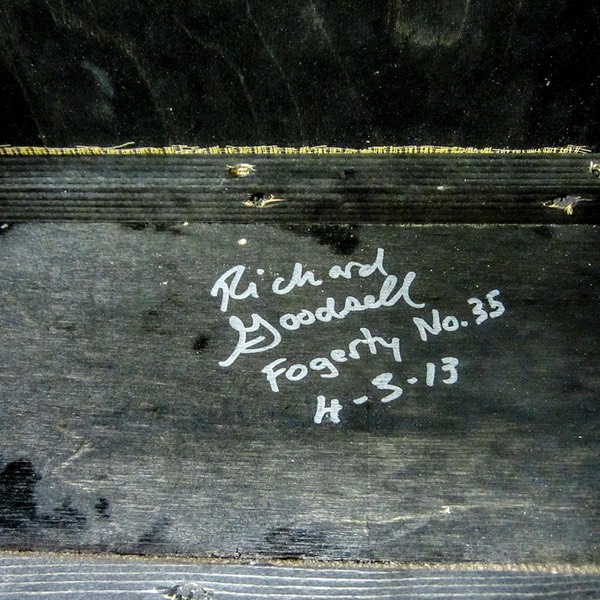 Richard
Goodsell
Fogerty No. 35
4-3-13